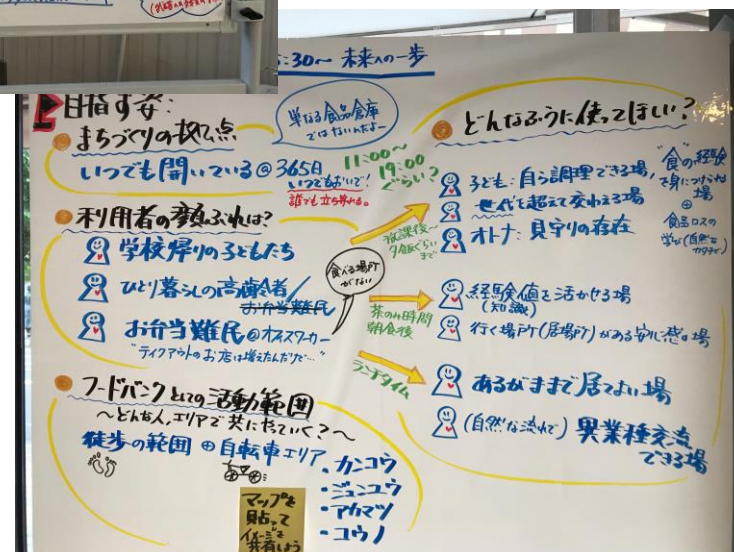 :30〜 未来への一歩
目指す姿:
まちづくりの拠点
単なる食品倉庫
ではないんだよー
いつでも開いている@365日
いつでもおいで!
誰でも立ち寄れる。
11:00〜
19:00
ぐらい?
利用者の顔ぶれは?
学校帰りの子どもたち
ひとり暮らしの高齢者/
お弁当難民
お弁当難民@オフィスワーカー
"テイクアウトのお店は増えたんだけど…"
食べる場所
がない
放課後〜
夕飯ぐらい
まで
茶のみ時間
朝食後
ランチタイム
フードバンクとしての活動範囲
〜どんな人、エリアで共にやっていく?〜
徒歩の範囲⊕自転車エリア
・カンコウ
・ジュンユウ
・アカマツ
・ユウノ
マップを
貼って
イメージを
共有しよう
どんなふうに使ってほしい?
子ども:自ら調理できる場,
世代を超えて交わえる場
オトナ:見守りの存在
"食"の経験
を身につけられる
場
⊕
食品ロスの
学び(自然な
カタチで)
経験値を活かせる場
(知識)
行く場所(居場所)がある安心感の場
あるがままで居てよい場
(自然な流れで)異業種交流
できる場